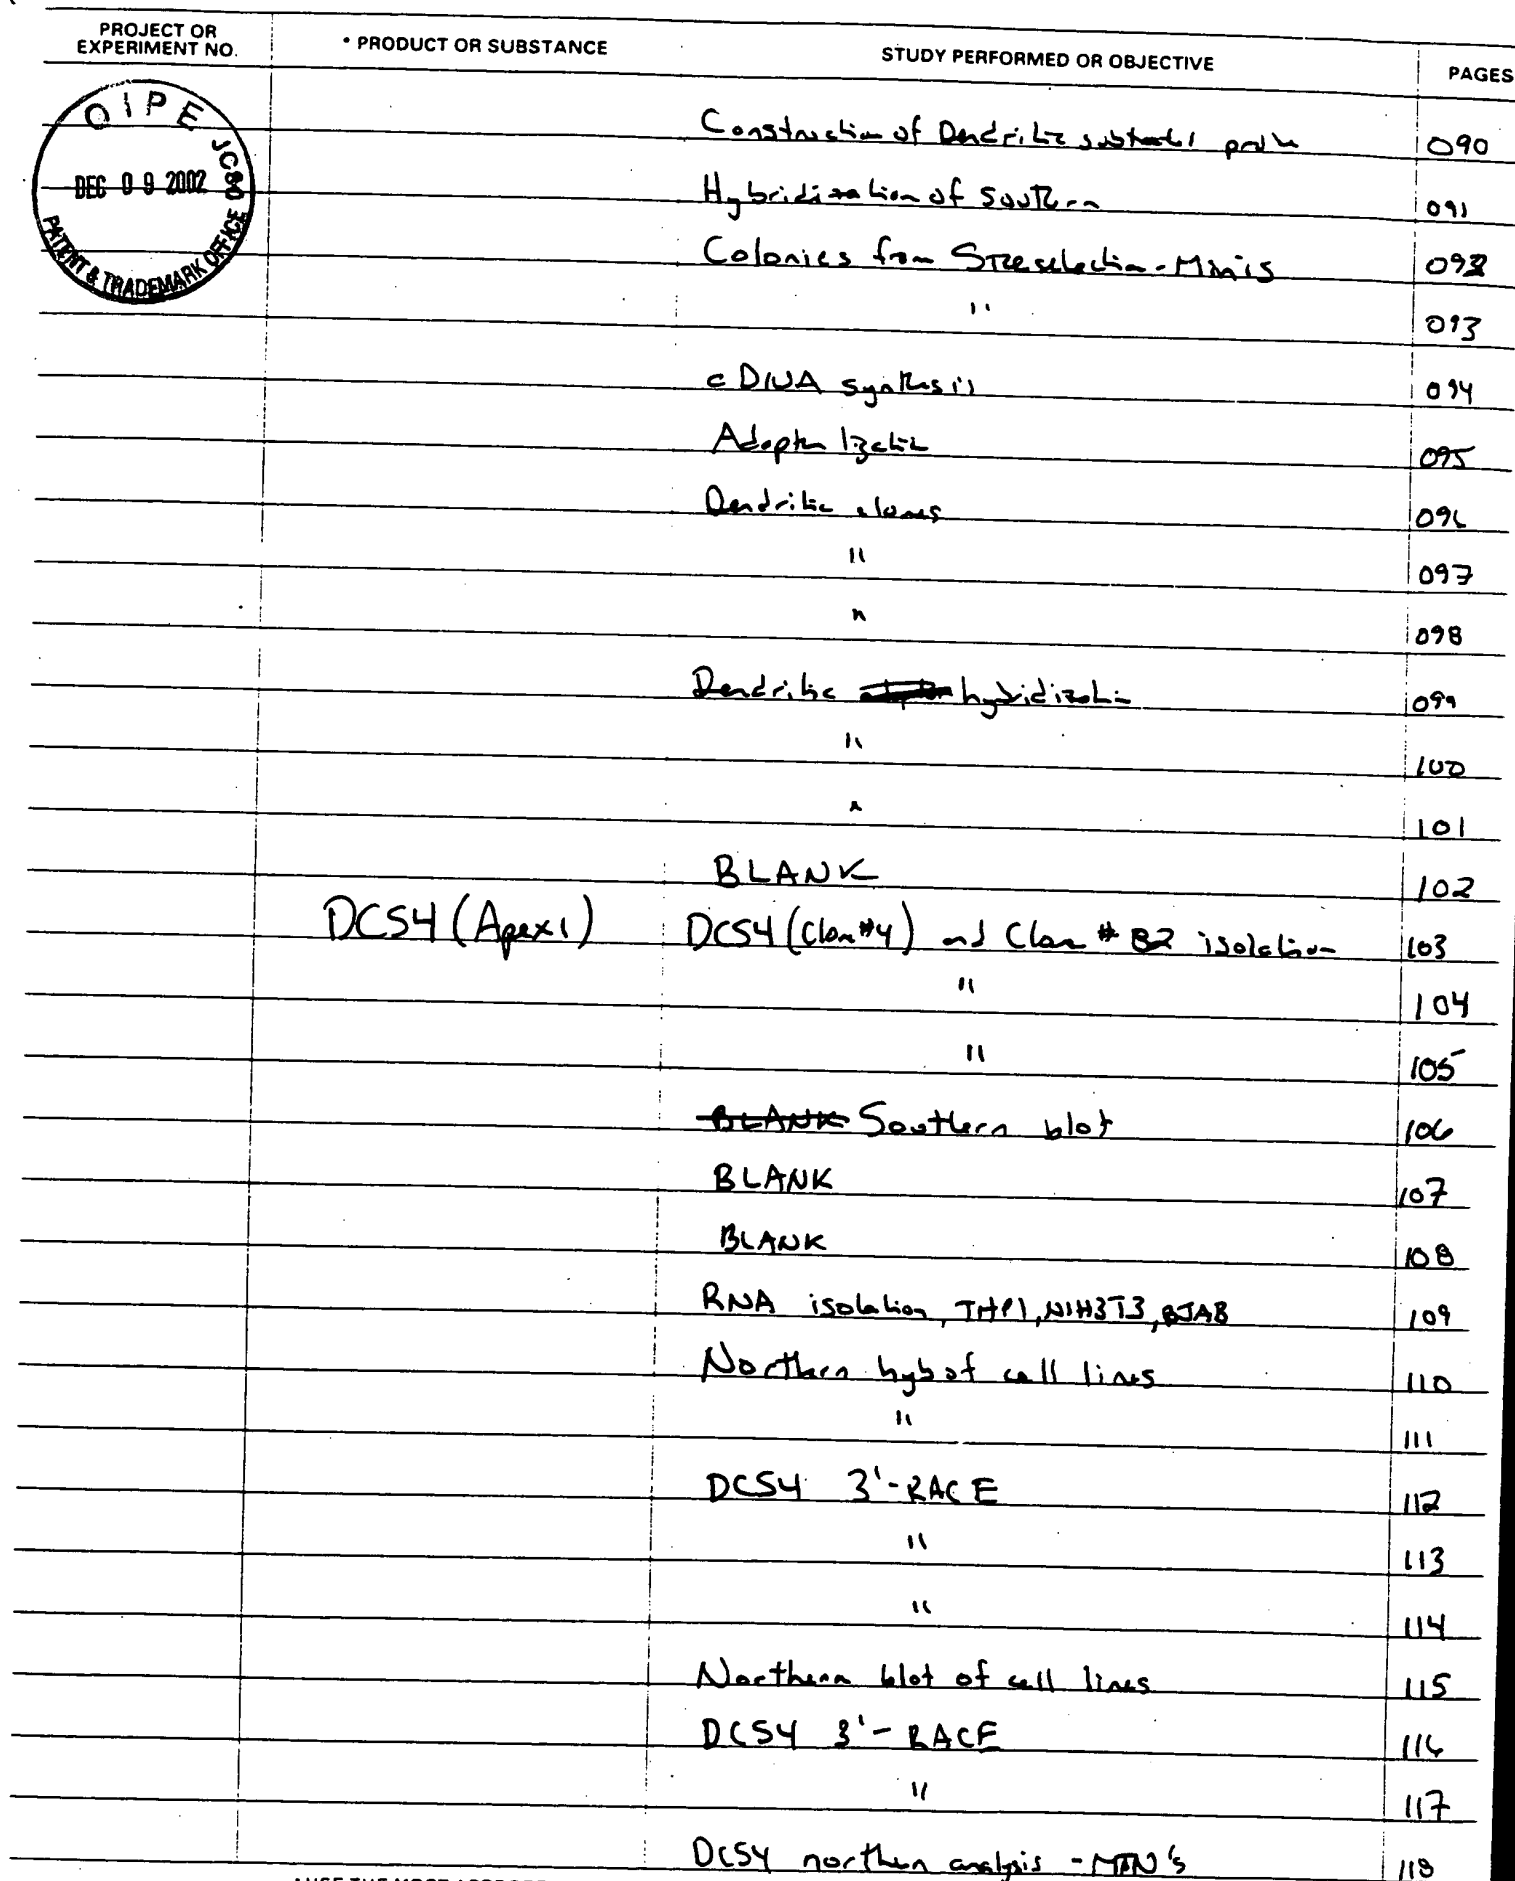 PROJECT OR EXPERIMENT NO. • PRODUCT OR SUBSTANCE STUDY PERFORMED OR OBJECTIVE PAGES
OIPE JC80
DEC 09 2002
PATENT & TRADEMARK OFFICE
Construction of Dendritic 090
Hybridization of Southern 091
Colonies from Size selection - Minis 092
" 093
cDNA synthesis 094
Adapter ligation 095
Dendritic clones 096
" 097
" 098
Dendritic hybridization 099
" 100
" 101
BLANK 102
DCS4 (Apex1) DCS4 (Clone #4) and Clone # B2 isolation 103
" 104
" 105
BLANK Southern blot 106
BLANK 107
BLANK 108
RNA isolation, THP1, NIH3T3, BJAB 109
Northern hyb of cell lines 110
" 111
DCS4 3'-RACE 112
" 113
" 114
Northern blot of cell lines 115
DCS4 3'-RACE 116
" 117
DCS4 northern analysis - MTN's 118